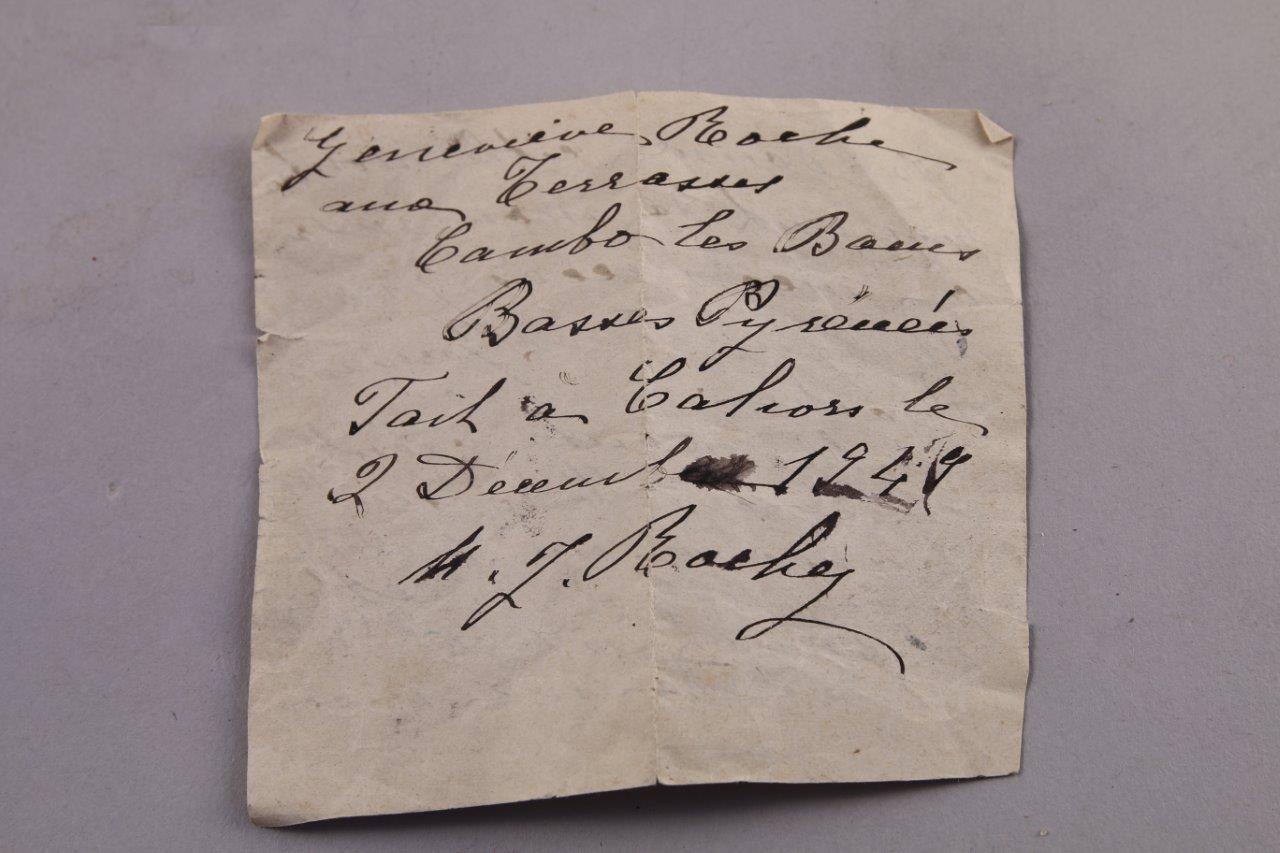 Geneviève Roche
aux Terrasses
Cambo les Bains
Basses Pyrénées
Fait à Cahors le
2 Décembre
M. J. Roche